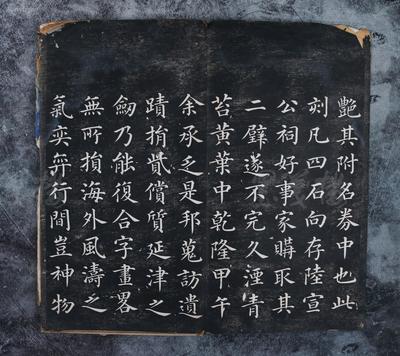 豔其附名券中也此
刻凡四石向存陸宣
公祠好事家購取其
二璧遂不完久湮青
苔黃葉中乾隆甲午
余承乏是邦蒐訪遺
蹟捐貲償質延津之
劒乃能復合字畫畧
無所損海外風濤之
氣奕奕行間豈神物